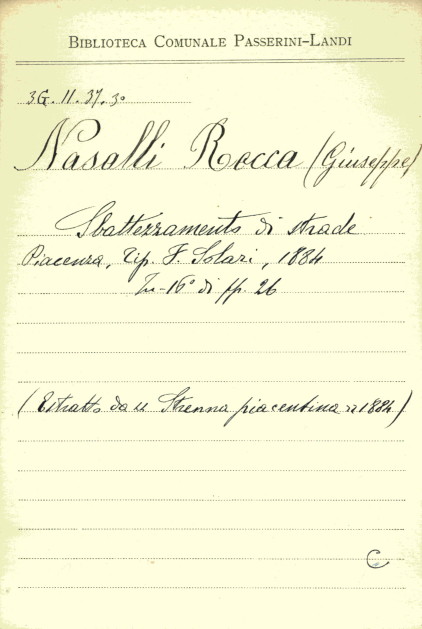 BIBLIOTECA COMUNALE PASSERINI-LANDI
3G. 11. 37. 3°
Nasalli Rocca (Giuseppe)
Sbattezzamento di strade
Piacenza, Tip. F. Solari, 1884
In-16° di pp. 26
(Estratto da "Strenna piacentina" 1884)
C